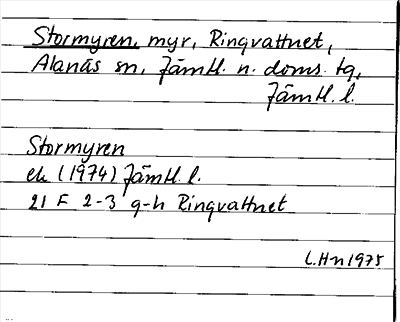 Stormyren, myr, Ringvattnet,
Alanäs sn, Jämtl. n. doms. tg,
Jämtl. l.
Stormyren
ek (1974) Jämtl. l.
21 F 2-3 g-h Ringvattnet
L.Hn 1975